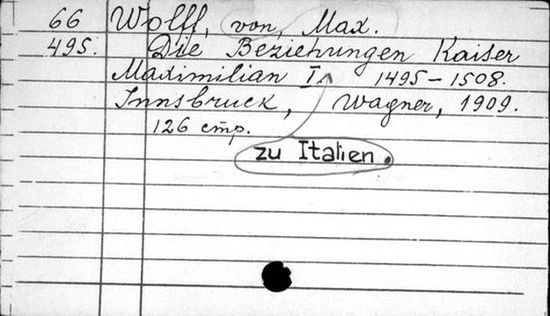 66 Wolff, von, Max.
495. Die Beziehungen Kaiser
Maximilian I. 1495-1508.
Innsbruck, Wagner, 1909.
126 стр.
zu Italien.